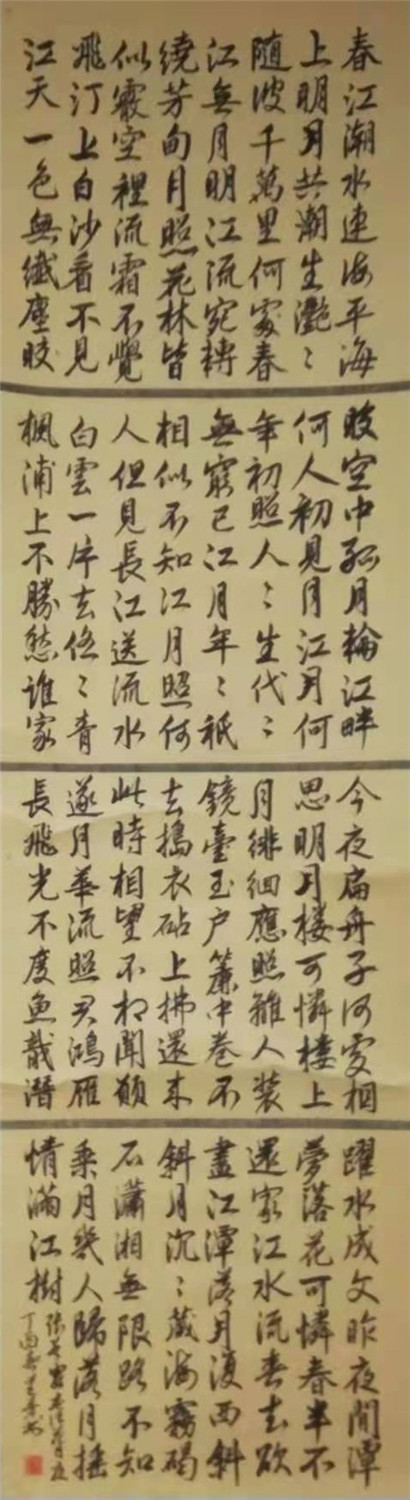 春江潮水連海平海
上明月共潮生灔〻
随波千萬里何處春
江無月明江流宛轉
繞芳甸月照花林皆
似霰空裡流霜不覺
飛汀上白沙看不見
江天一色無纖塵皎
皎空中孤月輪江畔
何人初見月江月何
年初照人〻生代〻
無窮已江月年〻祇
相似不知江月照何
人但見長江送流水
白雲一片去悠〻青
楓浦上不勝愁誰家
今夜扁舟子何處相
思明月樓可憐樓上
月徘徊應照離人裝
鏡臺玉户簾中卷不
去搗衣砧上拂還来
此時相望不相聞願
逐月華流照君鴻雁
長飛光不度魚龍潛
躍水成文昨夜間潭
夢落花可憐春半不
還家江水流春去欲
盡江潭落月復西斜
斜月沉〻藏海霧碣
石瀟湘無限路不知
乘月幾人歸落月搖
情滿江樹